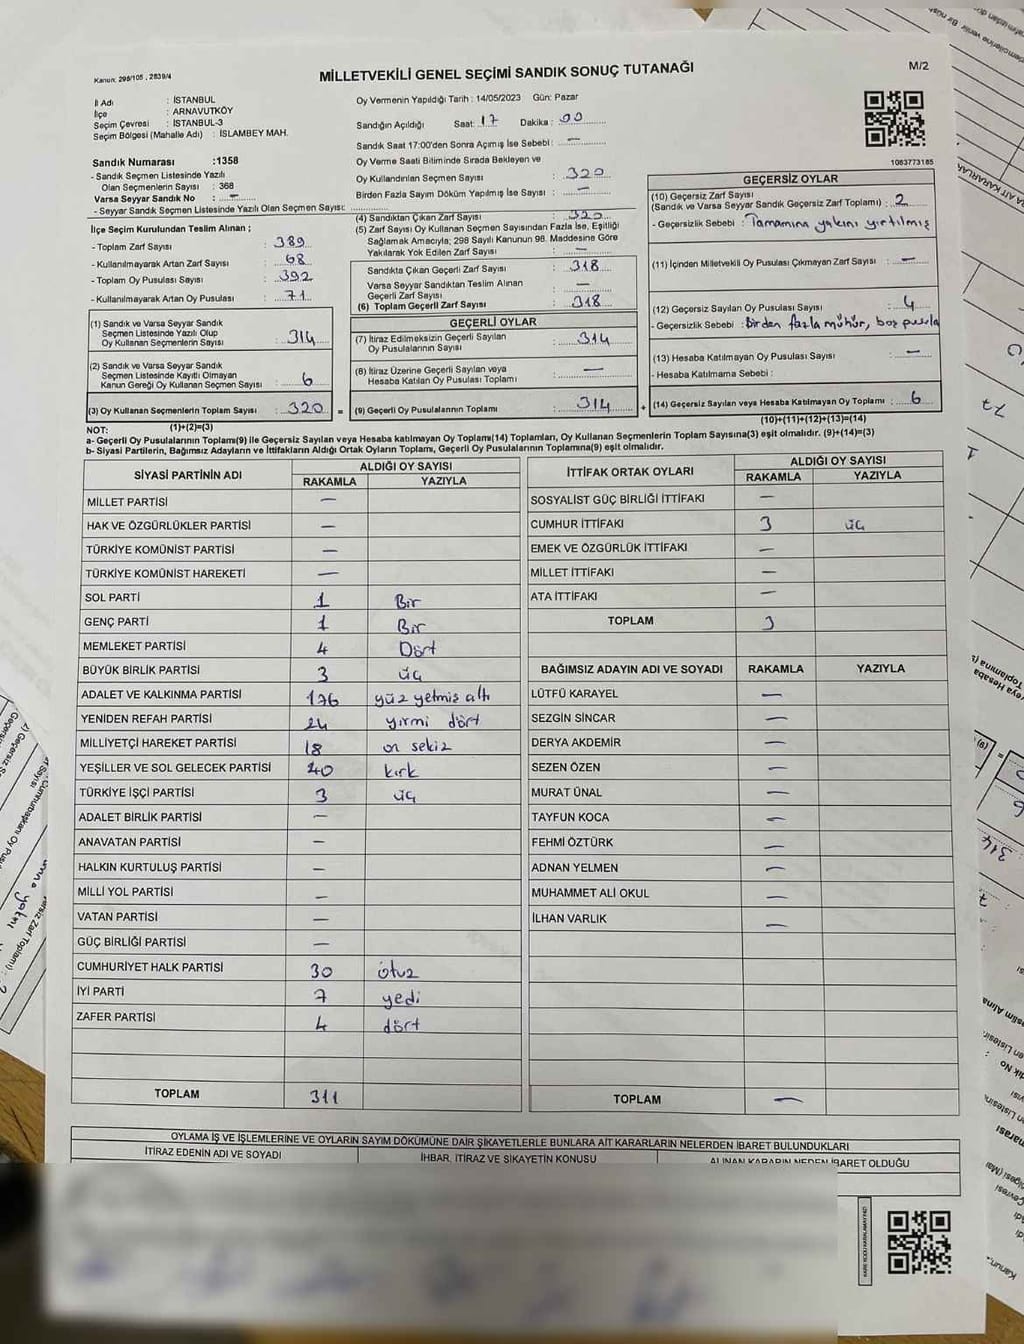 Kanun: 298/105 , 2839/4
MİLLETVEKİLİ GENEL SEÇİMİ SANDIK SONUÇ TUTANAĞI
M/2
İl Adı : İSTANBUL
İlçe : ARNAVUTKÖY
Seçim Çevresi : İSTANBUL-3
Seçim Bölgesi (Mahalle Adı) : İSLAMBEY MAH.
Sandık Numarası :1358
- Sandık Seçmen Listesinde Yazılı
Olan Seçmenlerin Sayısı : 368
Varsa Seyyar Sandık No : —
- Seyyar Sandık Seçmen Listesinde Yazılı Olan Seçmen Sayısı:
Oy Vermenin Yapıldığı Tarih : 14/05/2023 Gün: Pazar
Sandığın Açıldığı Saat: 17 Dakika : 00
Sandık Saat 17:00'den Sonra Açımış İse Sebebi : —
Oy Verme Saati Bitiminde Sırada Bekleyen ve
Oy Kullandırılan Seçmen Sayısı : 320
Birden Fazla Sayım Döküm Yapılmış İse Sayısı : —
1063773185
İlçe Seçim Kurulundan Teslim Alınan ;
- Toplam Zarf Sayısı : 389
- Kullanılmayarak Artan Zarf Sayısı : 68
- Toplam Oy Pusulası Sayısı : 392
- Kullanılmayarak Artan Oy Pusulası : 71
(1) Sandık ve Varsa Seyyar Sandık
Seçmen Listesinde Yazılı Olup
Oy Kullanan Seçmenlerin Sayısı : 314
(2) Sandık ve Varsa Seyyar Sandık
Seçmen Listesinde Kayıtlı Olmayan
Kanun Gereği Oy Kullanan Seçmen Sayısı : 6
(3) Oy Kullanan Seçmenlerin Toplam Sayısı : 320 =
(1)+(2)=(3)
(4) Sandıktan Çıkan Zarf Sayısı : 320
(5) Zarf Sayısı Oy Kullanan Seçmen Sayısından Fazla İse, Eşitliği
Sağlamak Amacıyla; 298 Sayılı Kanunun 98. Maddesine Göre
Yakılarak Yok Edilen Zarf Sayısı : —
Sandıkta Çıkan Geçerli Zarf Sayısı : 318
Varsa Seyyar Sandıktan Teslim Alınan
Geçerli Zarf Sayısı : —
(6) Toplam Geçerli Zarf Sayısı : 318
GEÇERLİ OYLAR
(7) İtiraz Edilmeksizin Geçerli Sayılan
Oy Pusulalarının Sayısı : 314
(8) İtiraz Üzerine Geçerli Sayılan veya
Hesaba Katılan Oy Pusulası Toplamı : —
(9) Geçerli Oy Pusulalarının Toplamı : 314 +
GEÇERSİZ OYLAR
(10) Geçersiz Zarf Sayısı
(Sandık ve Varsa Seyyar Sandık Geçersiz Zarf Toplamı) : 2
- Geçersizlik Sebebi : Tamamına yakını yırtılmış
(11) İçinden Milletvekili Oy Pusulası Çıkmayan Zarf Sayısı : —
(12) Geçersiz Sayılan Oy Pusulası Sayısı : 4
- Geçersizlik Sebebi : Birden fazla mühür, boş pusula
(13) Hesaba Katılmayan Oy Pusulası Sayısı : —
- Hesaba Katılmama Sebebi :
(14) Geçersiz Sayılan veya Hesaba Katılmayan Oy Toplamı : 6
(10)+(11)+(12)+(13)=(14)
NOT:
a- Geçerli Oy Pusulalarının Toplamı(9) ile Geçersiz Sayılan veya Hesaba katılmayan Oy Toplamı(14) Toplamları, Oy Kullanan Seçmenlerin Toplam Sayısına(3) eşit olmalıdır. (9)+(14)=(3)
b- Siyasi Partilerin, Bağımsız Adayların ve İttifakların Aldığı Ortak Oyların Toplamı, Geçerli Oy Pusulalarının Toplamına(9) eşit olmalıdır.
SİYASİ PARTİNİN ADI ALDIĞI OY SAYISI
RAKAMLA YAZIYLA
MİLLET PARTİSİ —
HAK VE ÖZGÜRLÜKLER PARTİSİ —
TÜRKİYE KOMÜNİST PARTİSİ —
TÜRKİYE KOMÜNİST HAREKETİ —
SOL PARTİ 1 Bir
GENÇ PARTİ 1 Bir
MEMLEKET PARTİSİ 4 Dört
BÜYÜK BİRLİK PARTİSİ 3 üç
ADALET VE KALKINMA PARTİSİ 176 yüz yetmiş altı
YENİDEN REFAH PARTİSİ 24 yirmi dört
MİLLİYETÇİ HAREKET PARTİSİ 18 on sekiz
YEŞİLLER VE SOL GELECEK PARTİSİ 40 kırk
TÜRKİYE İŞÇİ PARTİSİ 3 üç
ADALET BİRLİK PARTİSİ —
ANAVATAN PARTİSİ —
HALKIN KURTULUŞ PARTİSİ —
MİLLİ YOL PARTİSİ —
VATAN PARTİSİ —
GÜÇ BİRLİĞİ PARTİSİ —
CUMHURİYET HALK PARTİSİ 30 otuz
İYİ PARTİ 7 yedi
ZAFER PARTİSİ 4 dört
TOPLAM 311
İTTİFAK ORTAK OYLARI ALDIĞI OY SAYISI
RAKAMLA YAZIYLA
SOSYALİST GÜÇ BİRLİĞİ İTTİFAKI —
CUMHUR İTTİFAKI 3 üç
EMEK VE ÖZGÜRLÜK İTTİFAKI —
MİLLET İTTİFAKI —
ATA İTTİFAKI —
TOPLAM 3
BAĞIMSIZ ADAYIN ADI VE SOYADI RAKAMLA YAZIYLA
LÜTFÜ KARAYEL —
SEZGİN SİNCAR —
DERYA AKDEMİR —
SEZEN ÖZEN —
MURAT ÜNAL —
TAYFUN KOCA —
FEHMİ ÖZTÜRK —
ADNAN YELMEN —
MUHAMMET ALİ OKUL —
İLHAN VARLIK —
TOPLAM —
OYLAMA İŞ VE İŞLEMLERİNE VE OYLARIN SAYIM DÖKÜMÜNE DAİR ŞİKAYETLERLE BUNLARA AİT KARARLARIN NELERDEN İBARET BULUNDUKLARI
İTİRAZ EDENİN ADI VE SOYADI İHBAR, İTİRAZ VE ŞİKAYETİN KONUSU ALINAN KARARIN NEDEN İBARET OLDUĞU